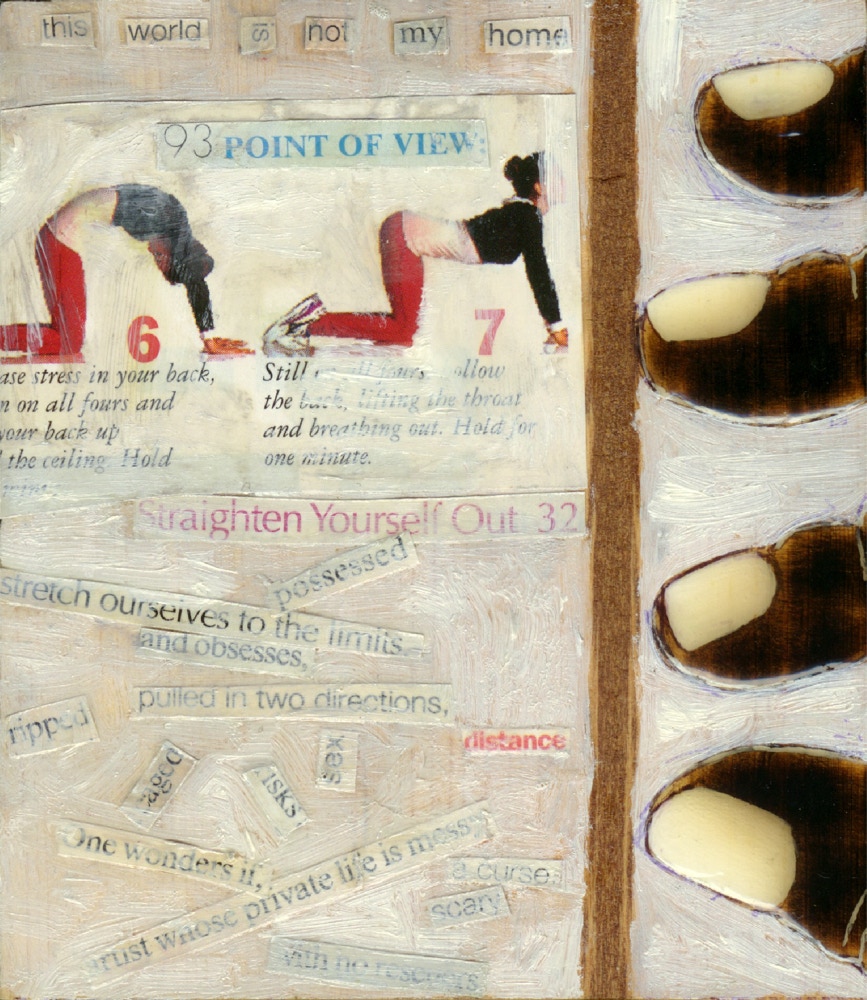 this world is not my home
93 POINT OF VIEW:
6
ase stress in your back,
n on all fours and
your back up
the ceiling. Hold
7
Still all fours
the back, lifting the throat
and breathing out. Hold for
one minute.
Straighten Yourself Out 32
possessed
stretch ourselves to the limits
and obsesses,
pulled in two directions,
ripped
distance
aged
risks
sex
One wonders if,
trust whose private life is messy
a curse.
scary
with no